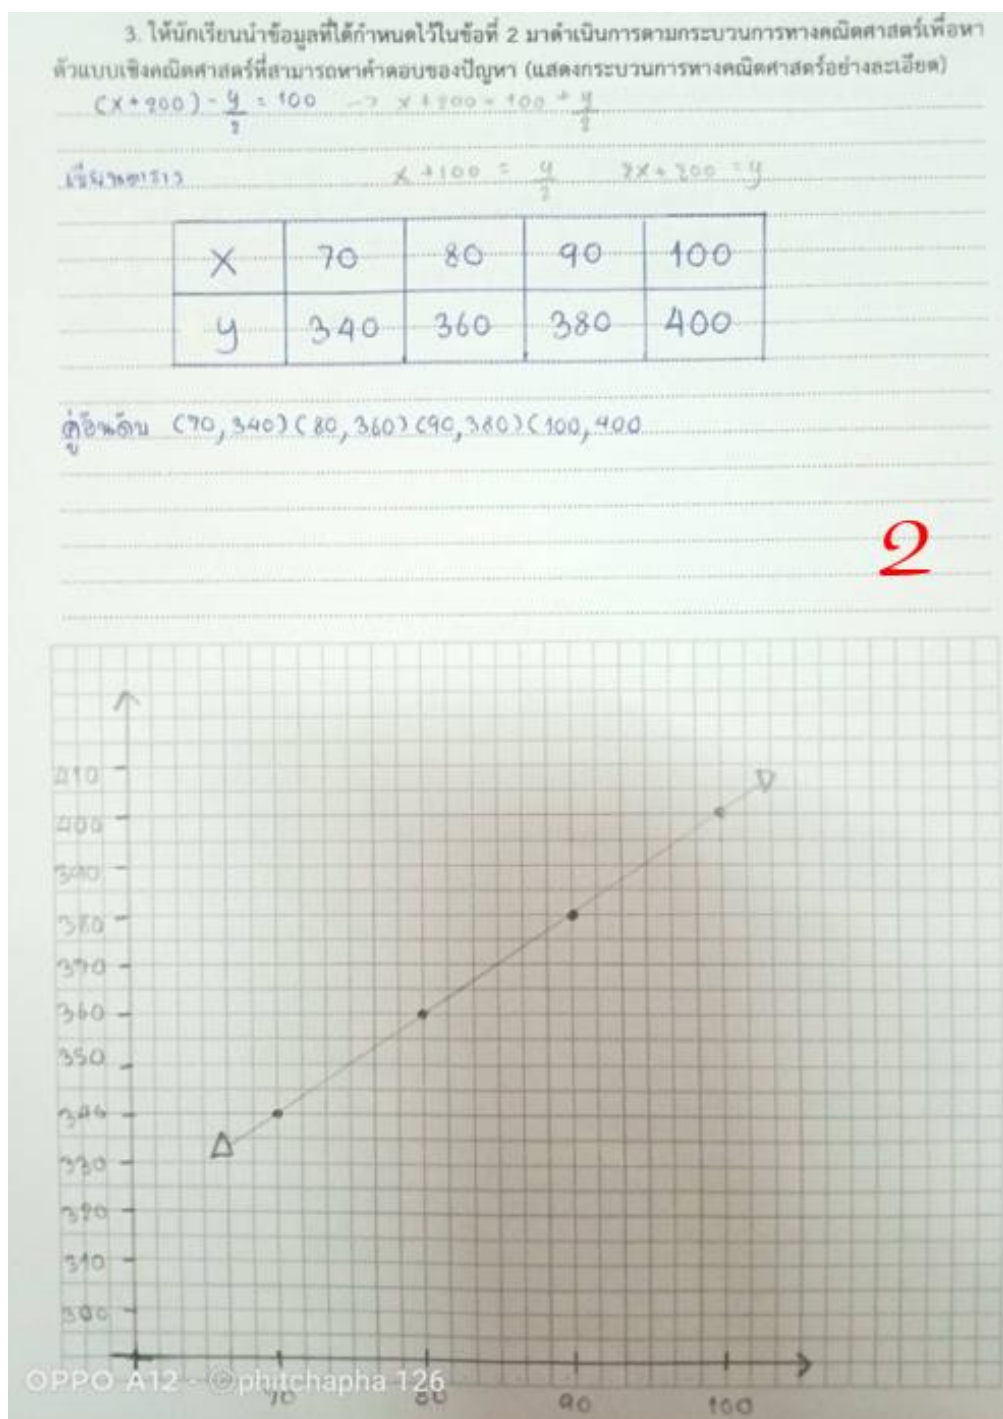 3. ให้นักเรียนนำข้อมูลที่ได้กำหนดไว้ในข้อที่ 2 มาดำเนินการตามกระบวนการทางคณิตศาสตร์เพื่อหา
ตัวแบบเชิงคณิตศาสตร์ที่สามารถหาคำตอบของปัญหา (แสดงกระบวนการทางคณิตศาสตร์อย่างละเอียด)
(x+200) - y/2 = 100 -> x+200 = 100 + y/2
เขียนตาราง x+100 = y/2 2x+200 = y
x 70 80 90 100
y 340 360 380 400
คู่อันดับ (70,340)(80,360)(90,380)(100,400
2
410
400
390
380
370
360
350
340
330
320
310
300
OPPO A12 · @phitchapha 126
70 80 90 100